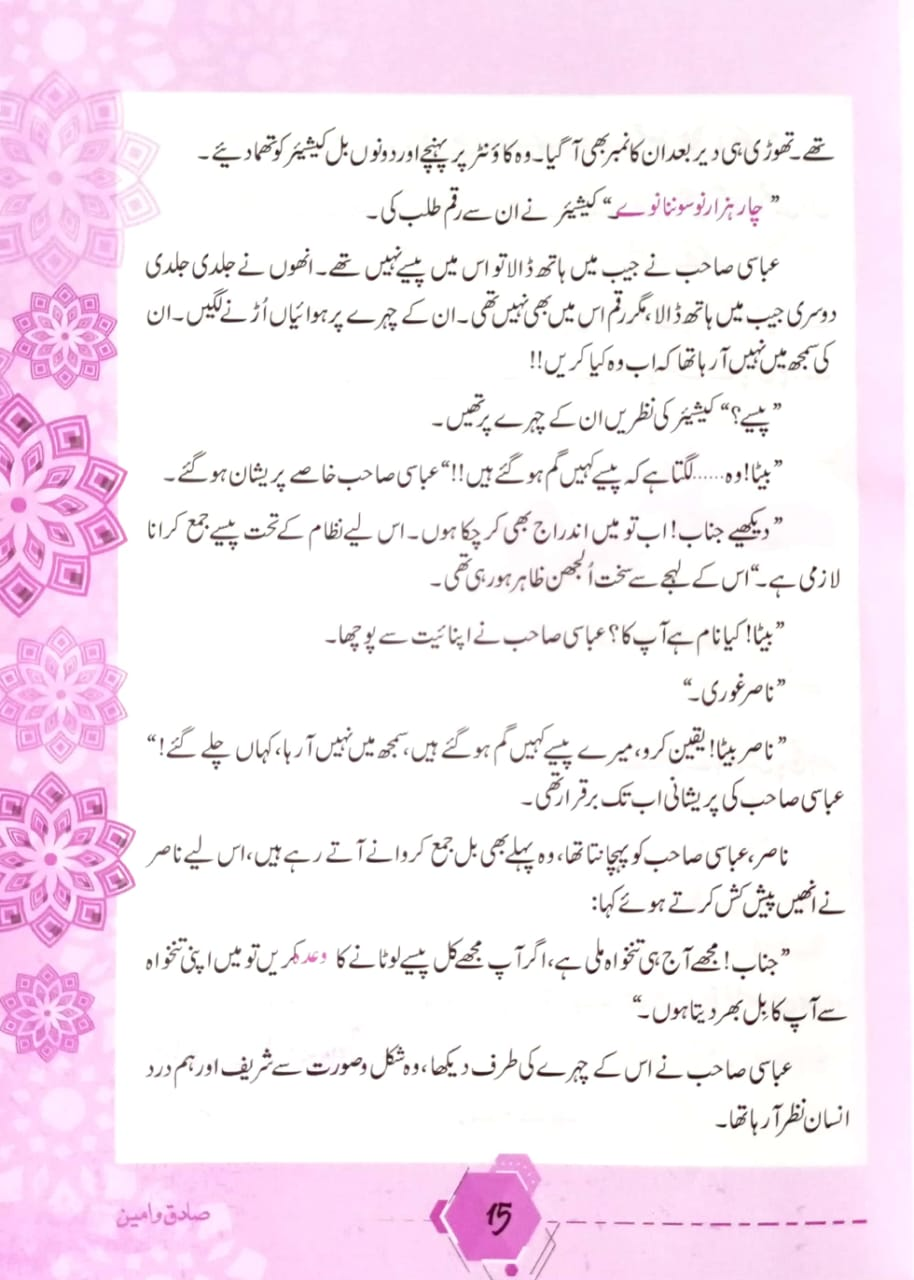 تھے۔ تھوڑی ہی دیر بعد ان کا نمبر بھی آ گیا۔ وہ کاؤنٹر پر پہنچے اور دونوں بل کیشیئر کو تھما دیئے۔
”چار ہزار نو سو ننانوے۔“ کیشیئر نے ان سے رقم طلب کی۔
عباسی صاحب نے جیب میں ہاتھ ڈالا تو اس میں پیسے نہیں تھے۔ انھوں نے جلدی جلدی
دوسری جیب میں ہاتھ ڈالا، مگر رقم اس میں بھی نہیں تھی۔ ان کے چہرے پر ہوائیاں اُڑنے لگیں۔ ان
کی سمجھ میں نہیں آ رہا تھا کہ اب وہ کیا کریں!!
”پیسے؟“ کیشیئر کی نظریں ان کے چہرے پر تھیں۔
”بیٹا! وہ...... لگتا ہے کہ پیسے کہیں گم ہو گئے ہیں!!“ عباسی صاحب خاصے پریشان ہو گئے۔
”دیکھیے جناب! اب تو میں اندراج بھی کر چکا ہوں۔ اس لیے نظام کے تحت پیسے جمع کرانا
لازمی ہے۔“ اس کے لہجے سے سخت اُلجھن ظاہر ہو رہی تھی۔
”بیٹا! کیا نام ہے آپ کا؟ عباسی صاحب نے اپنائیت سے پوچھا۔
”ناصر غوری۔“
”ناصر بیٹا! یقین کرو، میرے پیسے کہیں گم ہو گئے ہیں، سمجھ میں نہیں آ رہا، کہاں چلے گئے!“
عباسی صاحب کی پریشانی اب تک برقرار تھی۔
ناصر، عباسی صاحب کو پہچانتا تھا، وہ پہلے بھی بل جمع کروانے آتے رہے ہیں، اس لیے ناصر
نے انھیں پیش کش کرتے ہوئے کہا:
”جناب! مجھے آج ہی تنخواہ ملی ہے، اگر آپ مجھے کل پیسے لوٹانے کا وعدہ کریں تو میں اپنی تنخواہ
سے آپ کا بِل بھر دیتا ہوں۔“
عباسی صاحب نے اس کے چہرے کی طرف دیکھا، وہ شکل و صورت سے شریف اور ہم درد
انسان نظر آ رہا تھا۔
صادق و امین
15